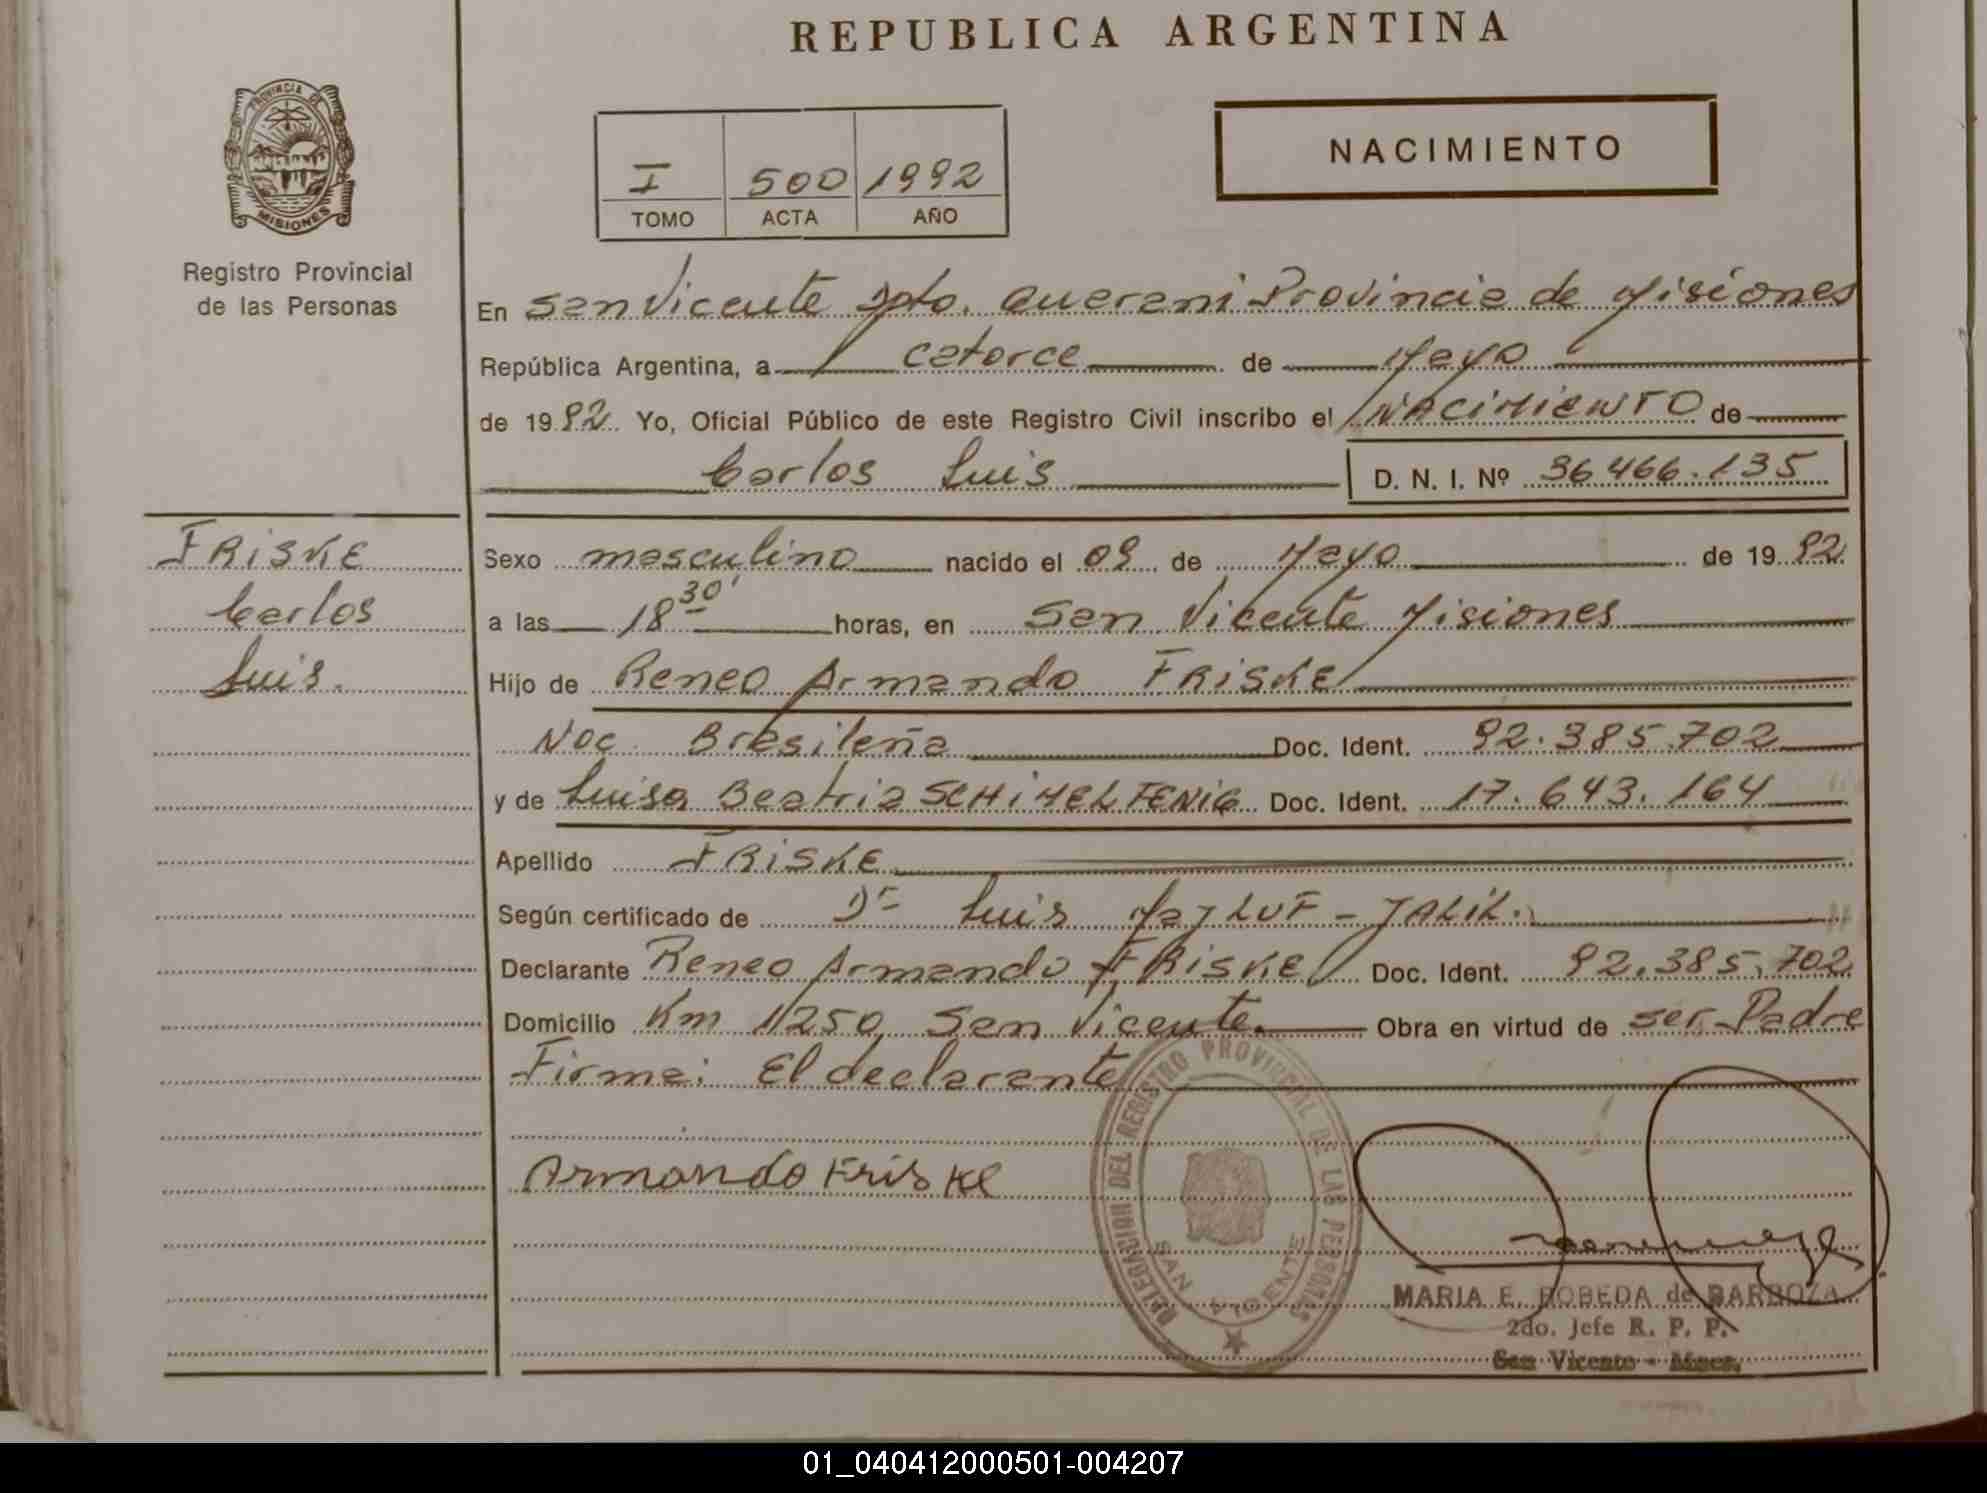 REPUBLICA ARGENTINA
PROVINCIA DE
MISIONES
Registro Provincial
de las Personas
I 500 1992
TOMO ACTA AÑO
NACIMIENTO
En San Vicente Dpto. Guarani Provincia de Misiones
República Argentina, a catorce de Mayo
de 1992. Yo, Oficial Público de este Registro Civil inscribo el NACIMIENTO de
Carlos Luis D. N. I. Nº 36466.135
FRISKE
Carlos
Luis.
Sexo masculino nacido el 09 de Mayo de 1992.
a las 18 30' horas, en San Vicente Misiones
Hijo de Reneo Armando FRISKE
Nac. Brasileña Doc. Ident. 92.385.702
y de Luisa Beatriz SCHIMELFENIG Doc. Ident. 17.643.164
Apellido FRISKE
Según certificado de Dr Luis JALIL.
Declarante Reneo Armando FRISKE Doc. Ident. 92.385.702
Domicilio Km 1250 San Vicente. Obra en virtud de ser Padre
Firma: El declarante
Armando Friske
DELEGACION DEL REGISTRO PROVINCIAL DE LAS PERSONAS
SAN VICENTE
MARIA E. POBEDA de BARBOZA
2do. Jefe R. P. P.
San Vicente - Mnes.
01_040412000501-004207